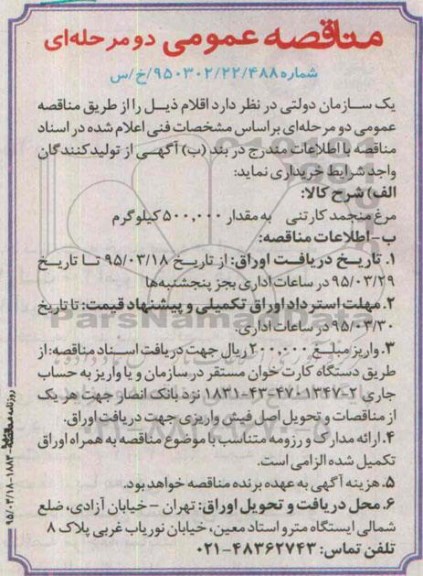 مناقصه عمومی دو مرحله‌ای
شماره ۹۵۰۳۰۲/۲۲/۴۸۸/خ/س
یک سازمان دولتی در نظر دارد اقلام ذیل را از طریق مناقصه
عمومی دو مرحله‌ای براساس مشخصات فنی اعلام شده در اسناد
مناقصه با اطلاعات مندرج در بند (ب) آگهی از تولیدکنندگان
واجد شرایط خریداری نماید:
الف) شرح کالا:
مرغ منجمد کارتنی به مقدار ۵۰۰,۰۰۰ کیلوگرم
ب - اطلاعات مناقصه:
۱. تاریخ دریافت اوراق: از تاریخ ۹۵/۰۳/۱۸ تا تاریخ
۹۵/۰۳/۲۹ در ساعات اداری بجز پنجشنبه‌ها
۲. مهلت استرداد اوراق تکمیلی و پیشنهاد قیمت: تا تاریخ
۹۵/۰۳/۳۰ در ساعات اداری.
۳. واریز مبلغ ۲۰۰,۰۰۰ ریال جهت دریافت اسناد مناقصه: از
طریق دستگاه کارت خوان مستقر در سازمان و یا واریز به حساب
جاری ۲-۱۳۴۷-۴۳۴۷-۱۸۳۱ نزد بانک انصار جهت هر یک
از مناقصات و تحویل اصل فیش واریزی جهت دریافت اوراق.
۴. ارائه مدارک و رزومه متناسب با موضوع مناقصه به همراه اوراق
تکمیل شده الزامی است.
۵. هزینه آگهی به عهده برنده مناقصه خواهد بود.
۶. محل دریافت و تحویل اوراق: تهران - خیابان آزادی، ضلع
شمالی ایستگاه مترو استاد معین، خیابان نوریاب غربی پلاک ۸
تلفن تماس: ۴۸۳۶۲۷۴۳-۰۲۱
ParsNamadData
روزنامه مناقصه ۱۸۸۳-۹۵/۰۳/۱۸